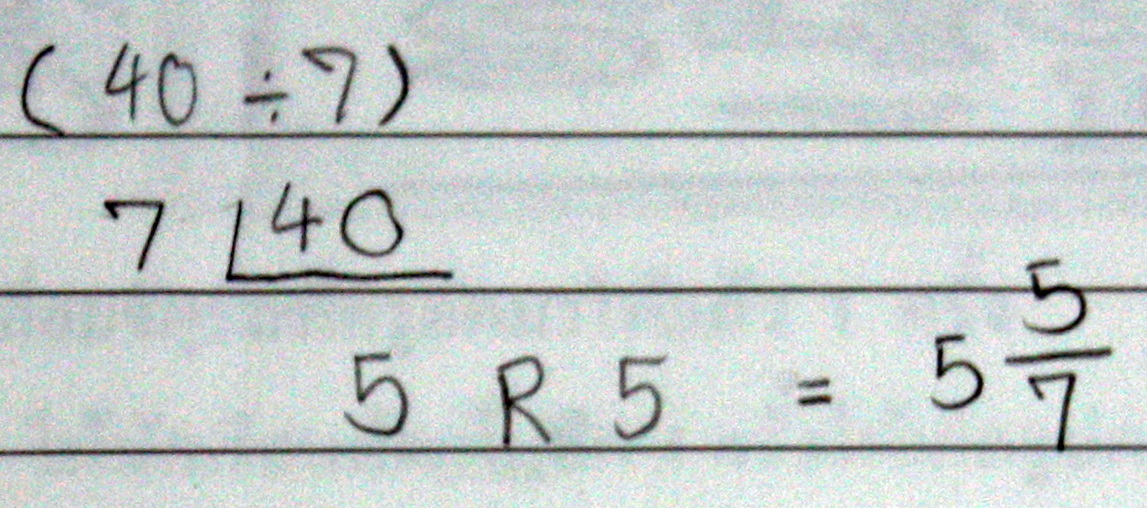 (40 ÷ 7)
7 40
5 R 5 = 5 5/7